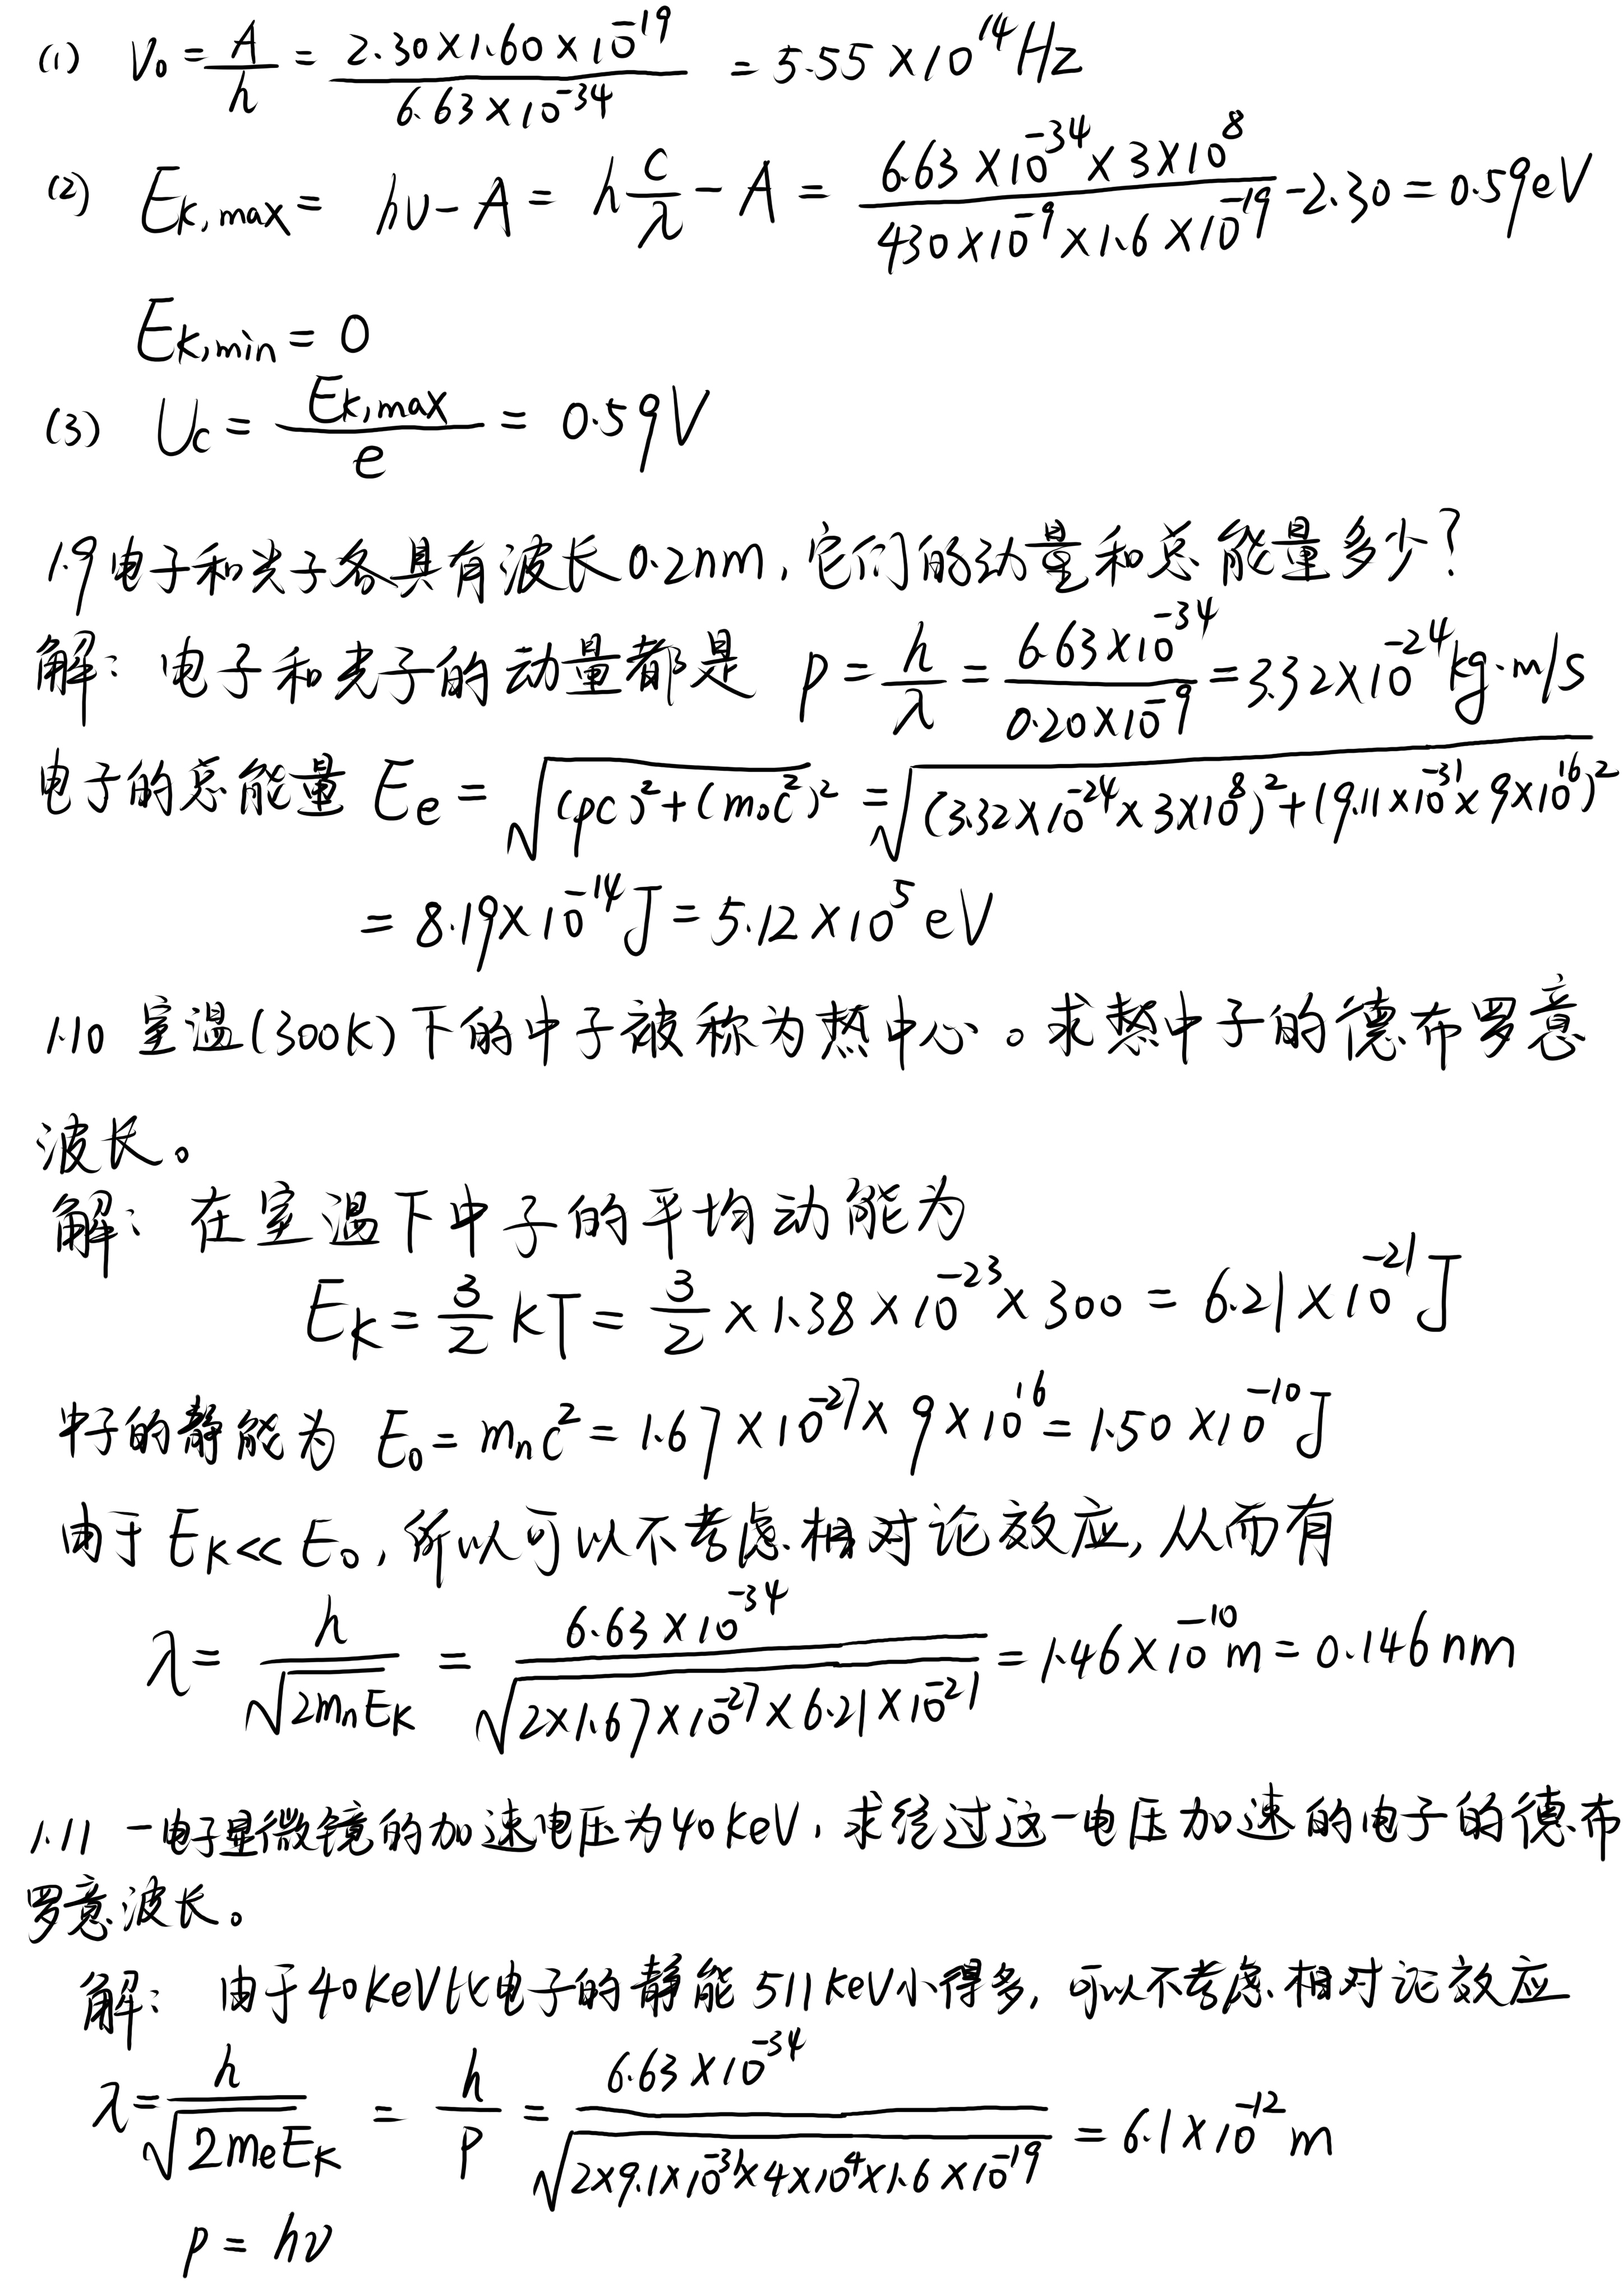 (1) ν₀ = A/h = (2.30×1.60×10⁻¹⁹)/(6.63×10⁻³⁴) = 5.55×10¹⁴Hz
(2) E_{k,max} = hν - A = h c/λ - A = (6.63×10⁻³⁴×3×10⁸)/(430×10⁻⁹×1.6×10⁻¹⁹) - 2.30 = 0.59eV
E_{k,min} = 0
(3) U_c = E_{k,max}/e = 0.59V
1.9 电子和光子各具有波长0.2nm,它们的动量和总能量多少?
解: 电子和光子的动量都是 p = h/λ = (6.63×10⁻³⁴)/(0.20×10⁻⁹) = 3.32×10⁻²⁴kg·m/s
电子的总能量 E_e = √((pc)²+(m₀c²)²) = √((3.32×10⁻²⁴×3×10⁸)²+(9.11×10⁻³¹×9×10¹⁶)²)
= 8.19×10⁻¹⁴J = 5.12×10⁵eV
1.10 室温(300K)下的中子被称为热中心。求热中子的德布罗意
波长。
解: 在室温下中子的平均动能为
E_k = 3/2 kT = 3/2 ×1.38×10⁻²³×300 = 6.21×10⁻²¹J
中子的静能为 E₀ = m_n c² = 1.67×10⁻²⁷×9×10¹⁶ = 1.50×10⁻¹⁰J
由于 E_k << E₀, 所以可以不考虑相对论效应, 从而有
λ = h/√(2m_nE_k) = (6.63×10⁻³⁴)/√(2×1.67×10⁻²⁷×6.21×10⁻²¹) = 1.46×10⁻¹⁰m = 0.146nm
1.11 一电子显微镜的加速电压为40keV,求经过这一电压加速的电子的德布
罗意波长。
解: 由于40keV比电子的静能511keV小得多, 可以不考虑相对论效应
λ = h/√(2m_eE_k) = h/p = (6.63×10⁻³⁴)/√(2×9.1×10⁻³¹×4×10⁴×1.6×10⁻¹⁹) = 6.1×10⁻¹²m
p = hν